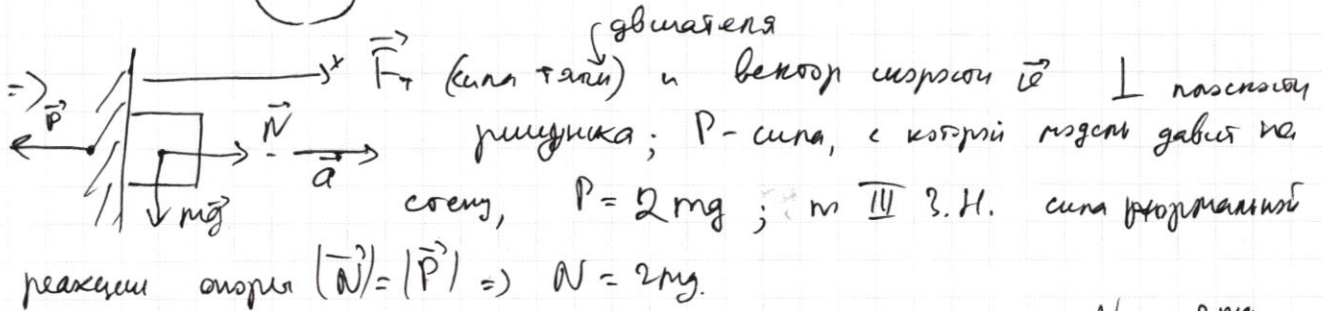 двигателя
=> x F⃗т (сила тяги) и вектор скорости v⃗ ⊥ плоскости
P⃗ N⃗ a⃗ рисунка; P - сила, с которой модель давит на
mg⃗ стену, P = 2mg; по III З.Н. сила нормальной
реакции опоры |N⃗| = |P⃗| => N = 2mg.